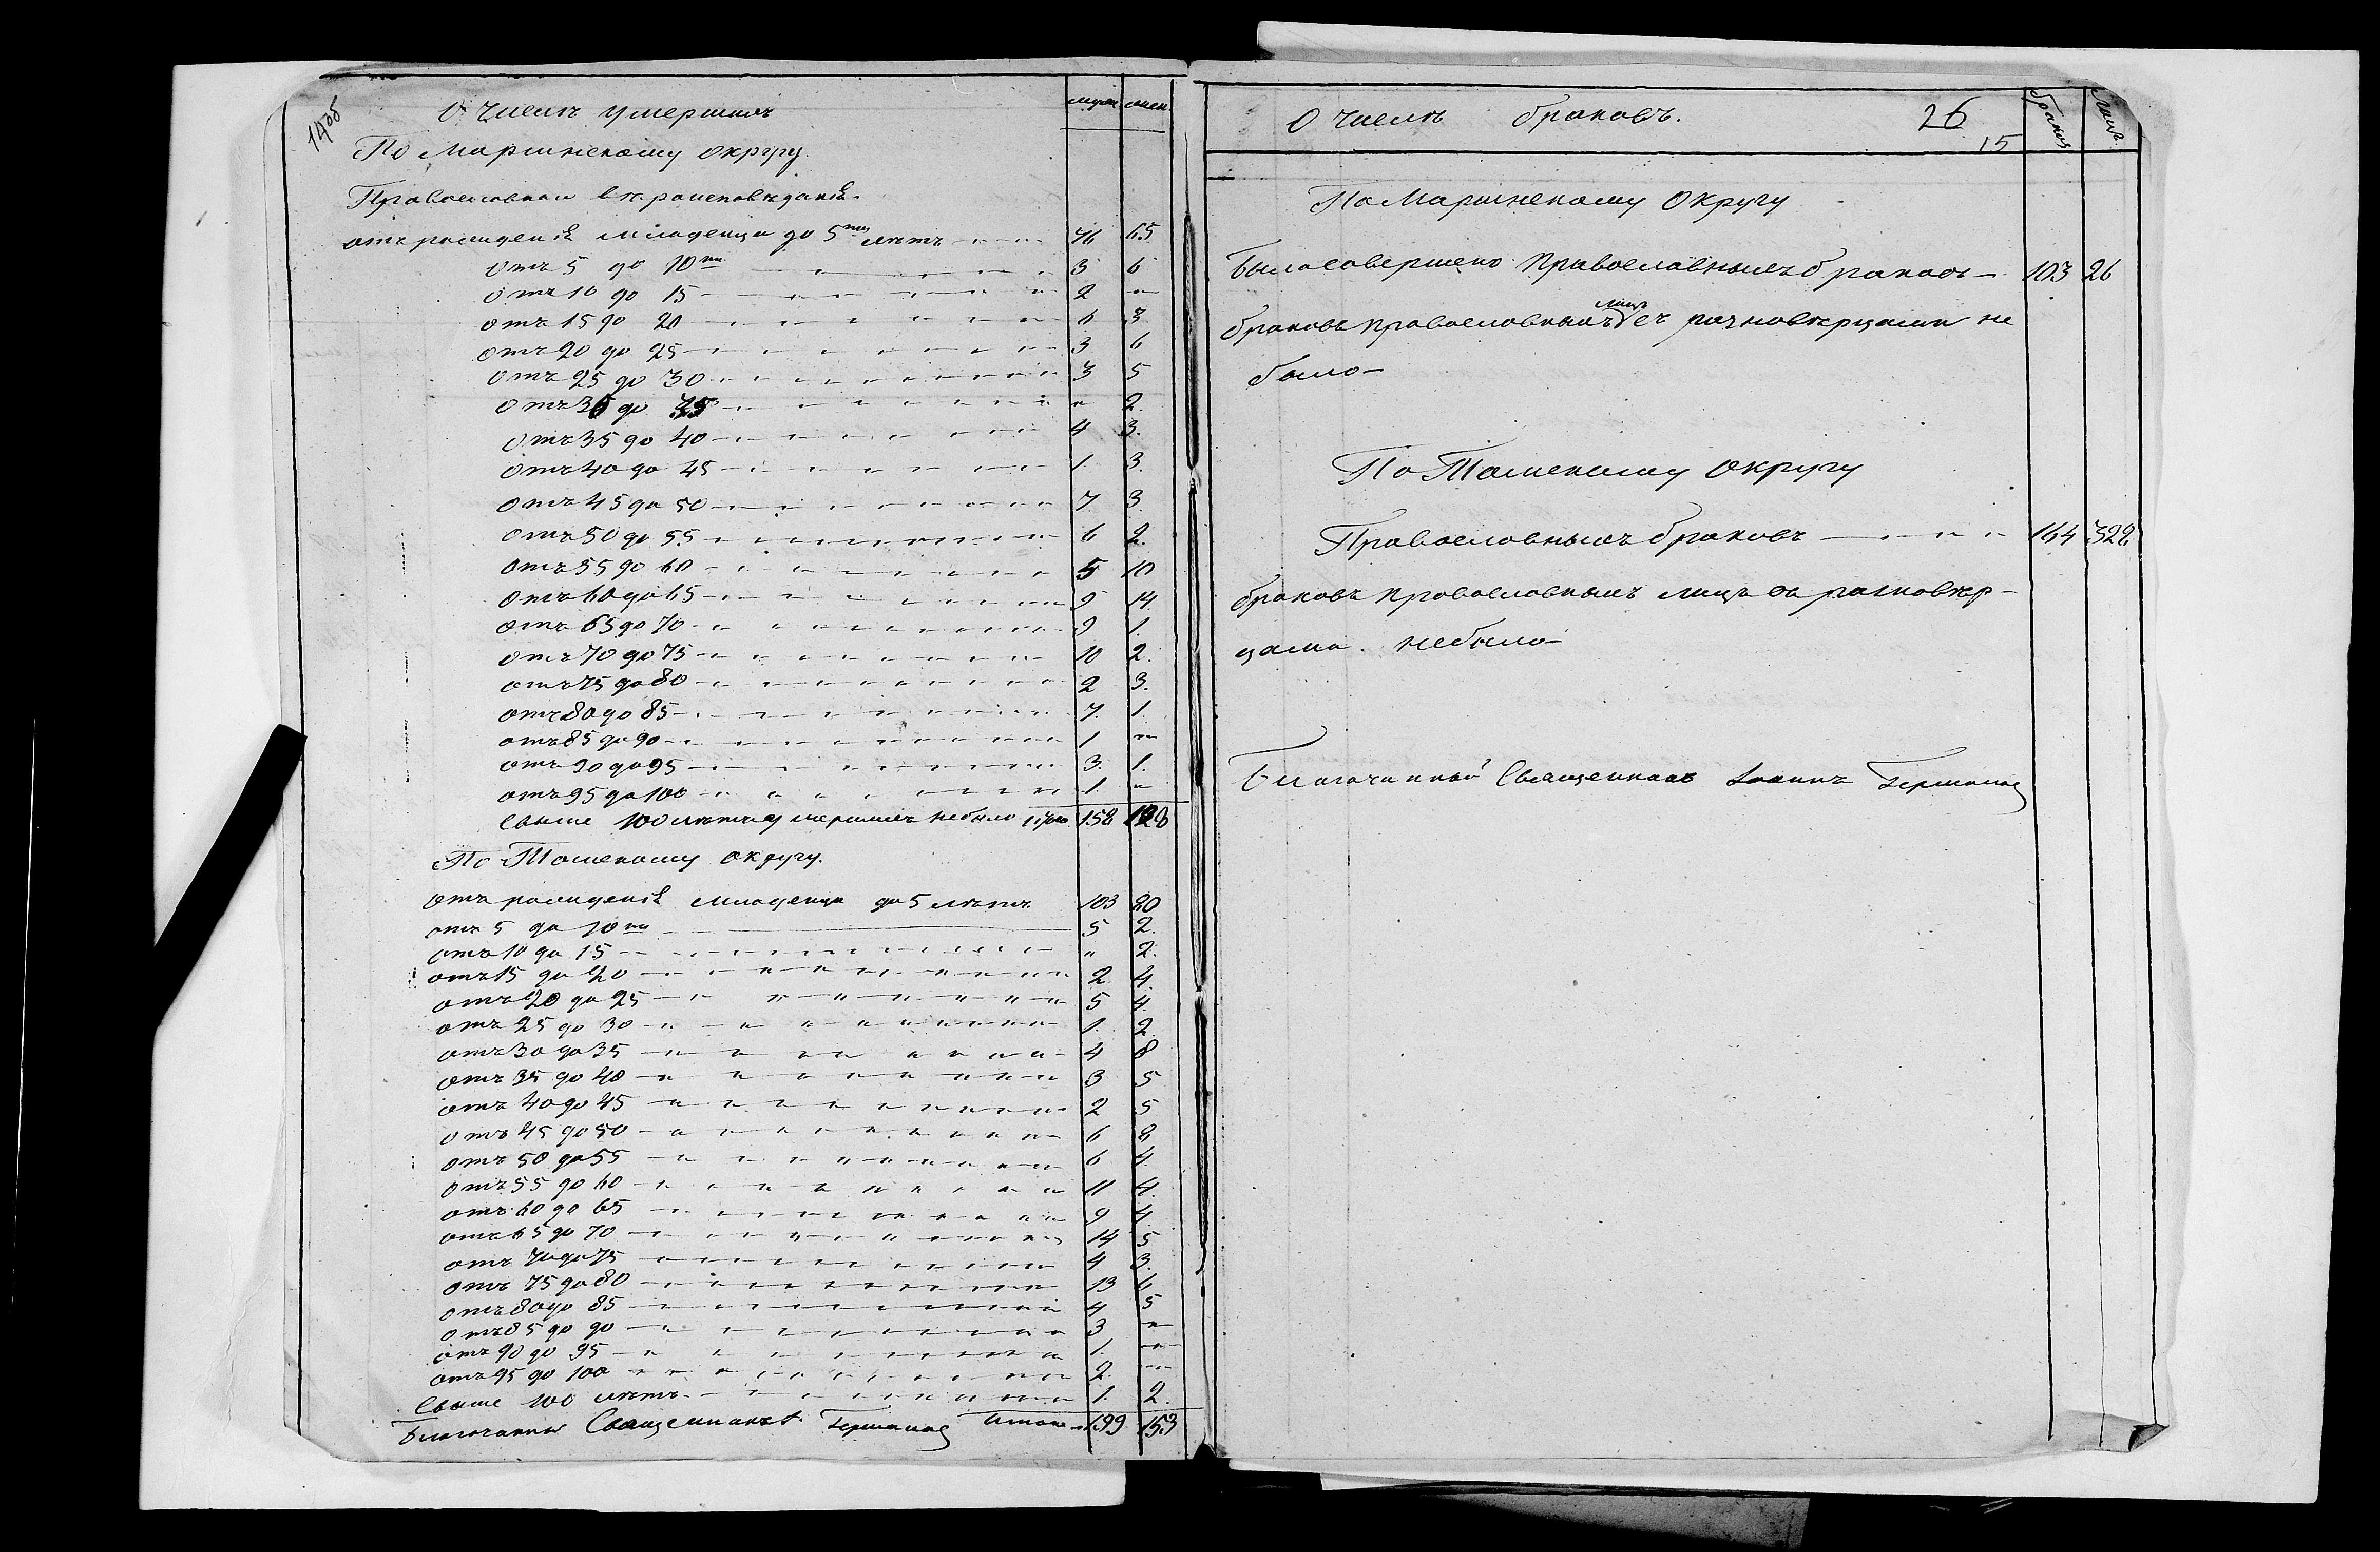 14об
О числѣ умершихъ
муж. жен.
По Маріинскому округу.
Православнаго вѣроисповѣданія.
отъ рожденія младенца до 5ти лѣтъ 76 65
отъ 5 до 10ти 3 6
отъ 10 до 15 2 "
отъ 15 до 20 6 3
отъ 20 до 25 3 6
отъ 25 до 30 3 5
отъ 30 до 35 " 2.
отъ 35 до 40 4 3.
отъ 40 до 45 1. 3.
отъ 45 до 50 7 3.
отъ 50 до 55 6 2.
отъ 55 до 60 5 10
отъ 60 до 65 9 14.
отъ 65 до 70 9 1.
отъ 70 до 75 10 2.
отъ 75 до 80 2 3.
отъ 80 до 85 7. 1.
отъ 85 до 90 1 "
отъ 90 до 95 3. 1.
отъ 95 до 100 1. "
свыше 100 лѣтъ умершихъ небыло Итого 158 128
По Томскому округу.
отъ рожденія младенца до 5 лѣтъ 103 80
отъ 5 до 10ти 5 2.
отъ 10 до 15 " 2.
отъ 15 до 20 2 4.
отъ 20 до 25 5 4.
отъ 25 до 30 1. 2.
отъ 30 до 35 4 8
отъ 35 до 40 3 5
отъ 40 до 45 2 5
отъ 45 до 50 6 8
отъ 50 до 55 6 4.
отъ 55 до 60 11 4.
отъ 60 до 65 9 4
отъ 65 до 70 14 5
отъ 70 до 75 4 3.
отъ 75 до 80 13 6
отъ 80 до 85 4 5
отъ 85 до 90 3 "
отъ 90 до 95 1. "
отъ 95 до 100 2. "
свыше 100 лѣтъ 1. 2.
Благочинный Священникъ Итого 199 153
О числѣ браковъ. 26
15
браки лицъ.
По Маріинскому округу
Было совершено православныхъ браковъ 103 26
лицъ
браковъ православныхъ съ разновѣрцами не
было
По Томскому округу
Православныхъ браковъ 164 328
браковъ православныхъ лицъ съ разновѣр-
цами. небыло
Благочинный Священникъ Іоаннъ